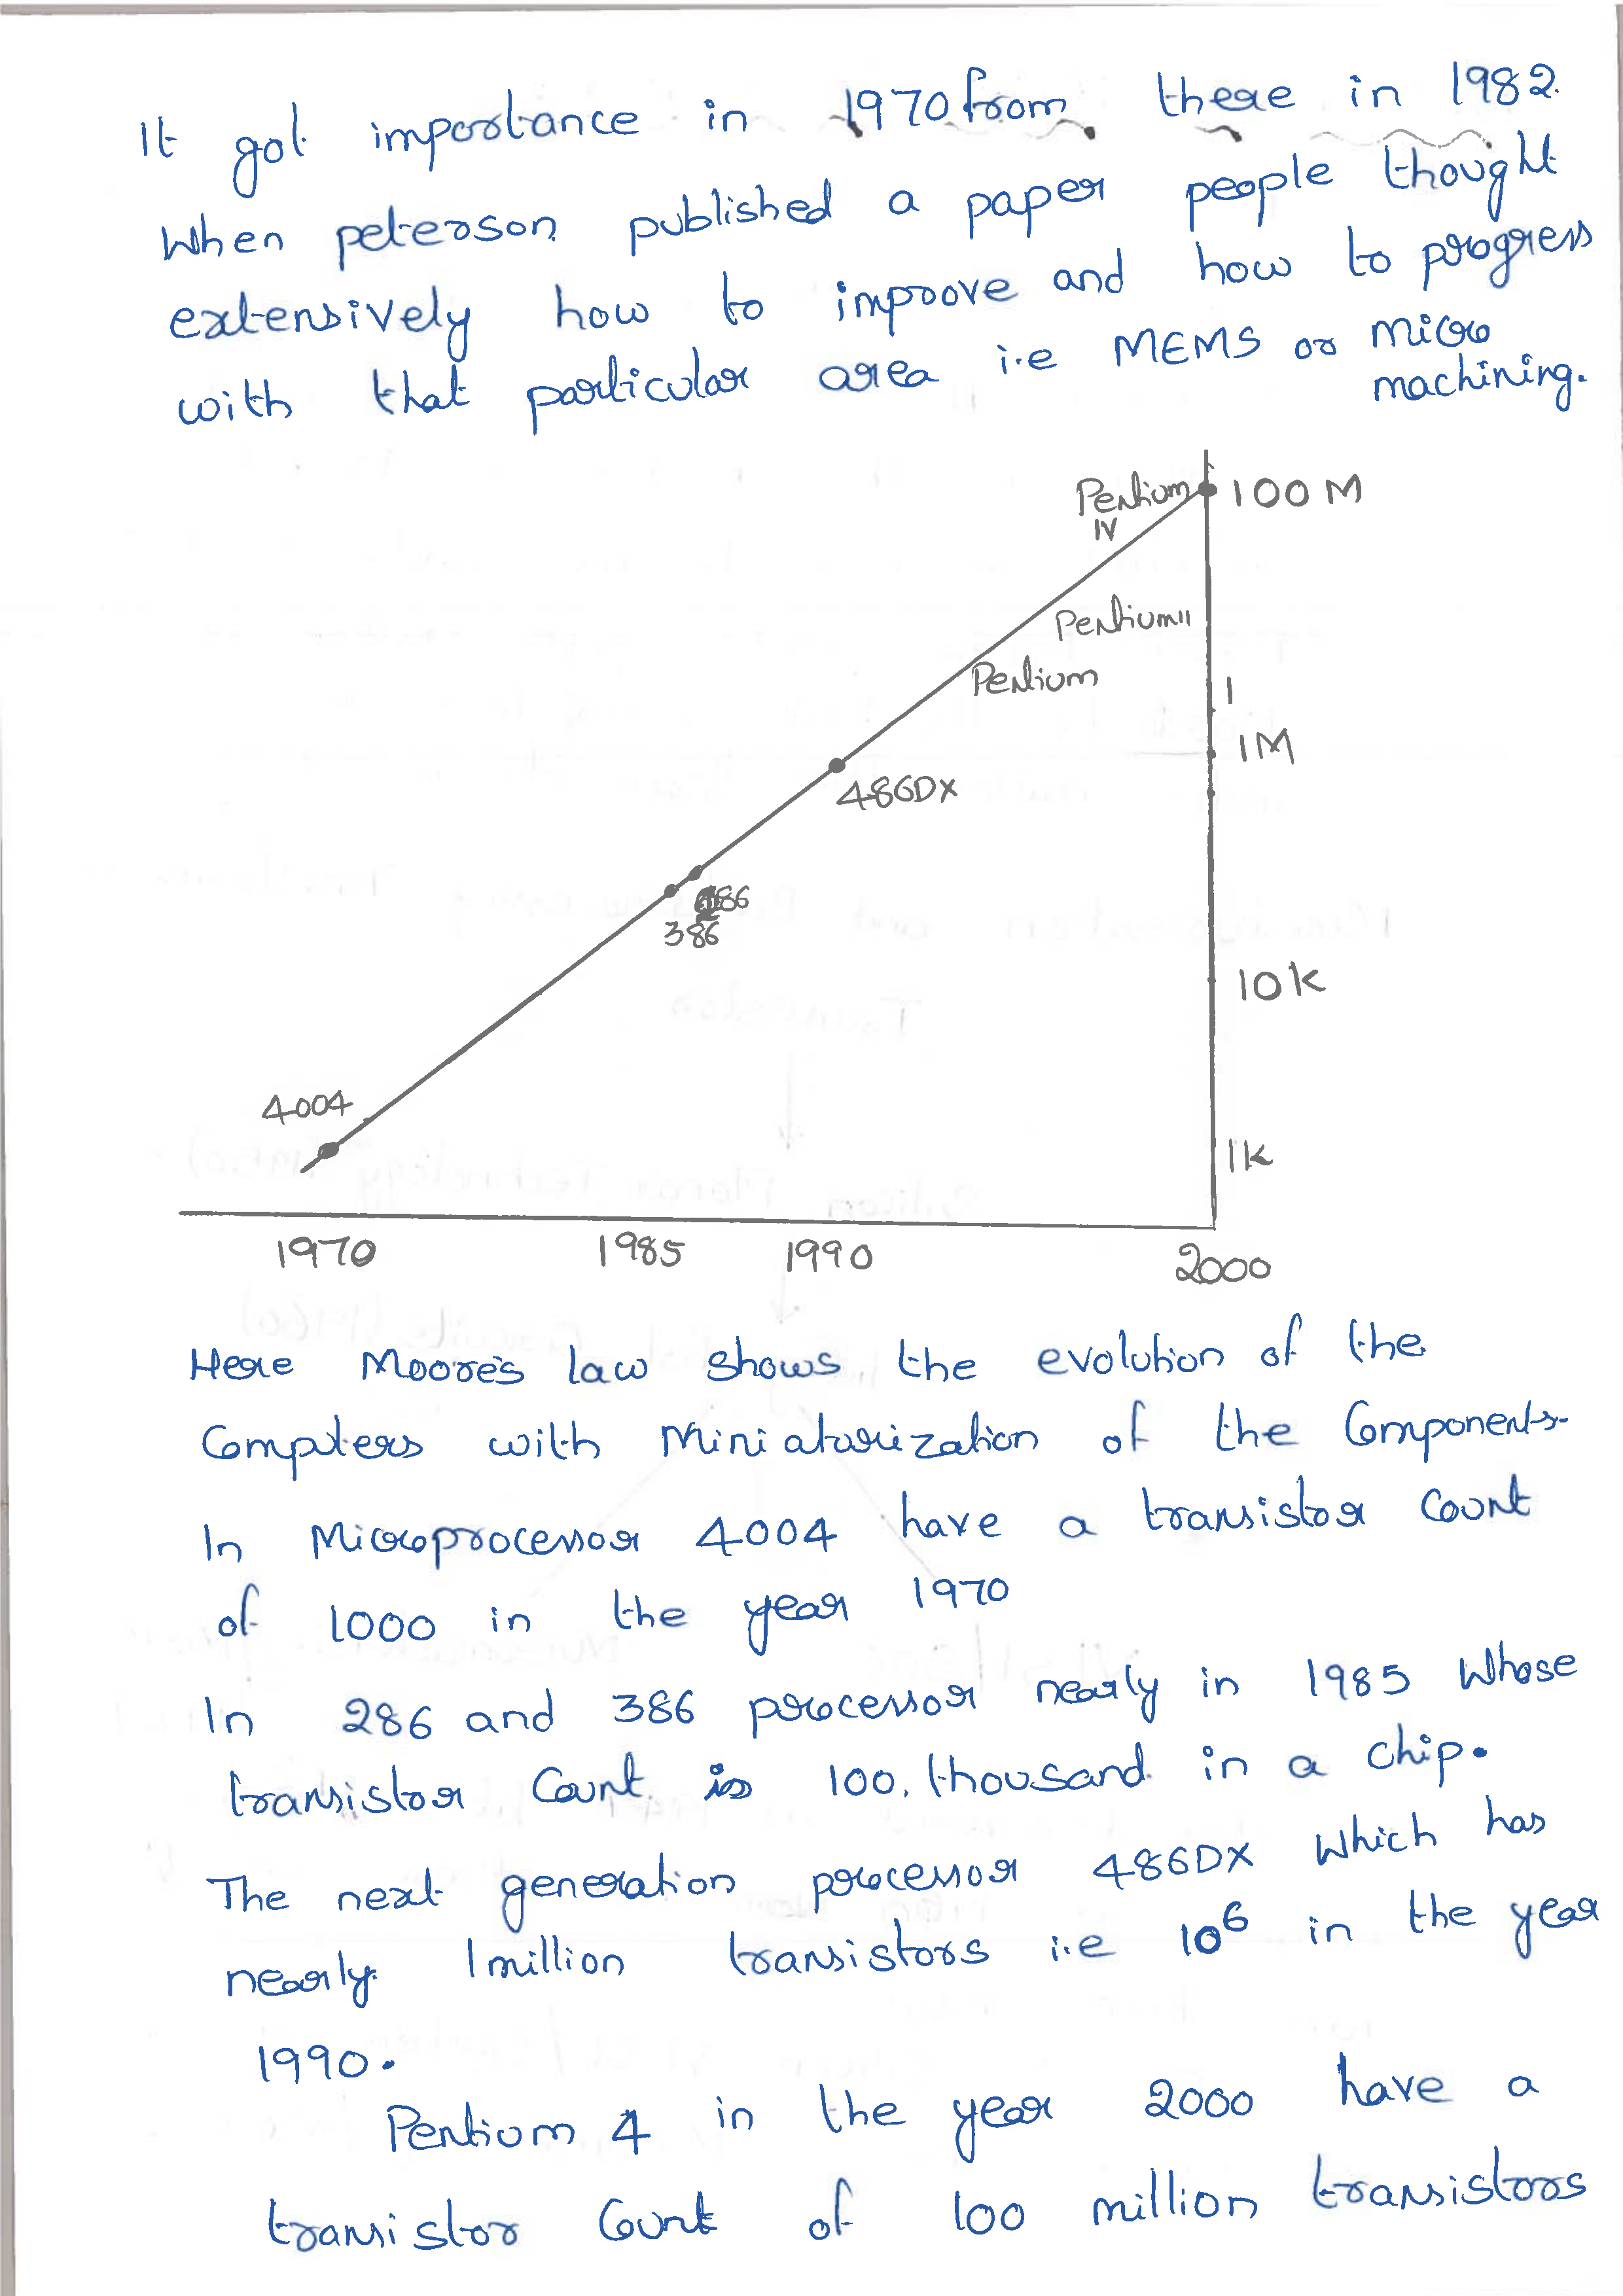 It got importance in 1970 from there in 1982.
When peterson published a paper people thought
extensively how to improove and how to progress
with that particular area i.e MEMS or micro
machining.
Pentium IV
100 M
Pentium II
Pentium
1
1M
486DX
286
386
10K
4004
1K
1970 1985 1990 2000
Here Moore's law shows the evolution of the
Computers with Miniaturization of the Components.
In Microprocessor 4004 have a transistor count
of 1000 in the year 1970
In 286 and 386 processor nearly in 1985 Whose
transistor Count is 100, thousand in a chip.
The next generation processor 486DX Which has
nearly 1 million transistors i.e 10⁶ in the year
1990.
Pentium 4 in the year 2000 have a
transistor Count of 100 million transistors